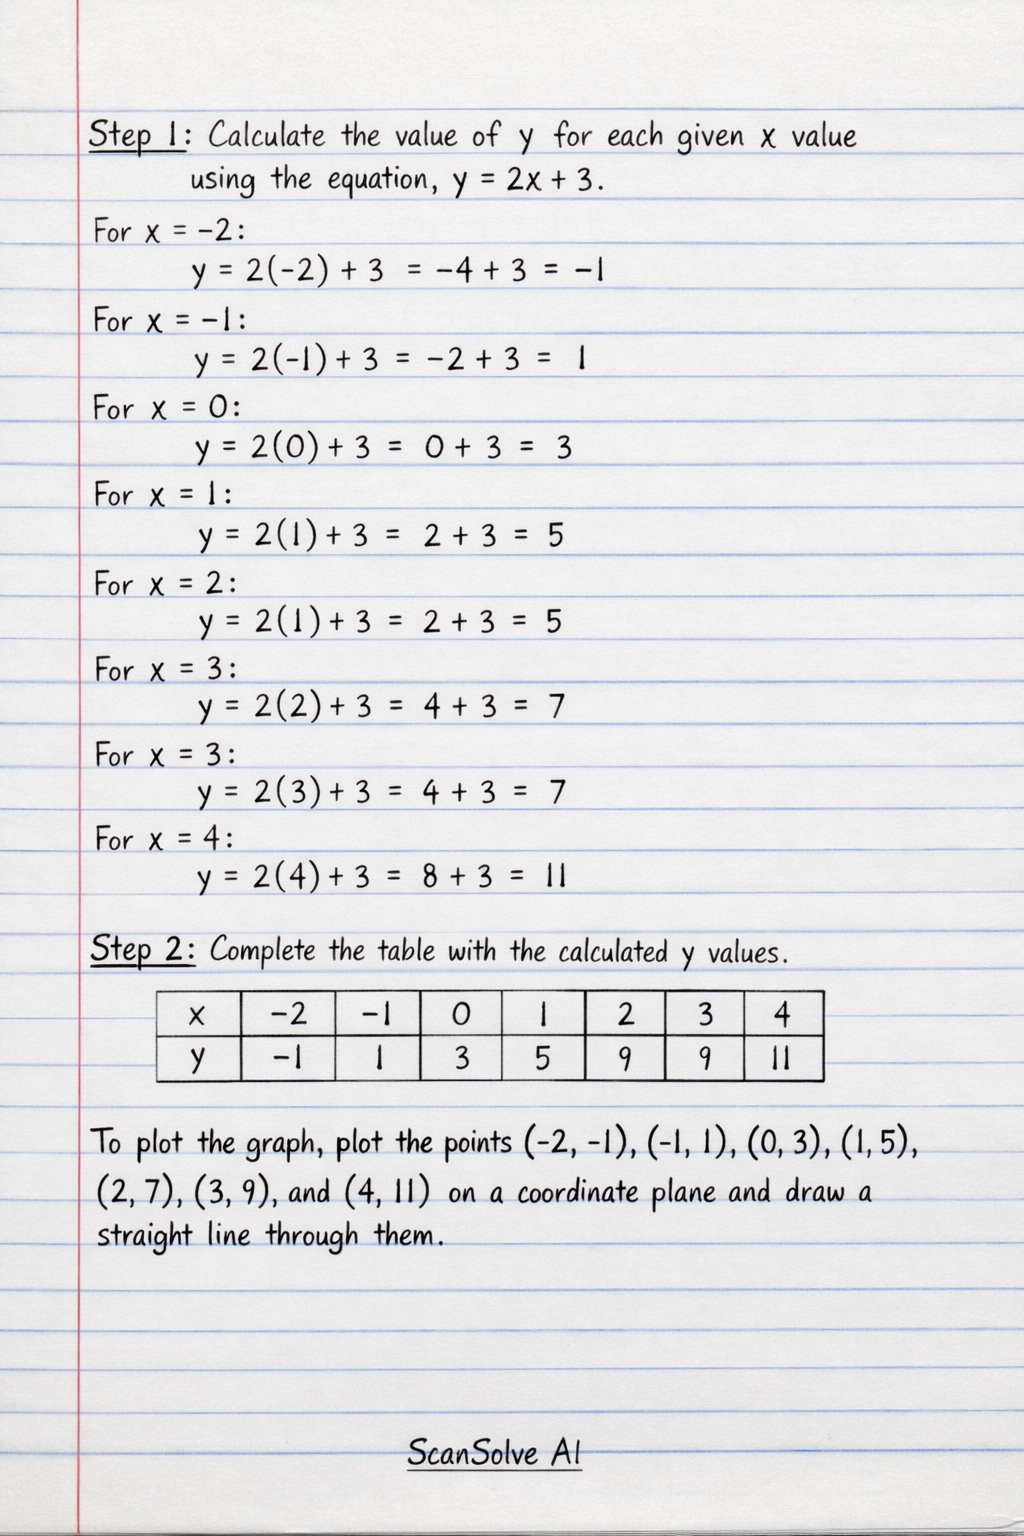 Step 1: Calculate the value of y for each given x value
using the equation, y = 2x + 3.
For x = -2:
y = 2(-2) + 3 = -4 + 3 = -1
For x = -1:
y = 2(-1) + 3 = -2 + 3 = 1
For x = 0:
y = 2(0) + 3 = 0 + 3 = 3
For x = 1:
y = 2(1) + 3 = 2 + 3 = 5
For x = 2:
y = 2(1) + 3 = 2 + 3 = 5
For x = 3:
y = 2(2) + 3 = 4 + 3 = 7
For x = 3:
y = 2(3) + 3 = 4 + 3 = 7
For x = 4:
y = 2(4) + 3 = 8 + 3 = 11
Step 2: Complete the table with the calculated y values.
x -2 -1 0 1 2 3 4
y -1 1 3 5 9 9 11
To plot the graph, plot the points (-2, -1), (-1, 1), (0, 3), (1, 5),
(2, 7), (3, 9), and (4, 11) on a coordinate plane and draw a
straight line through them.
ScanSolve AI